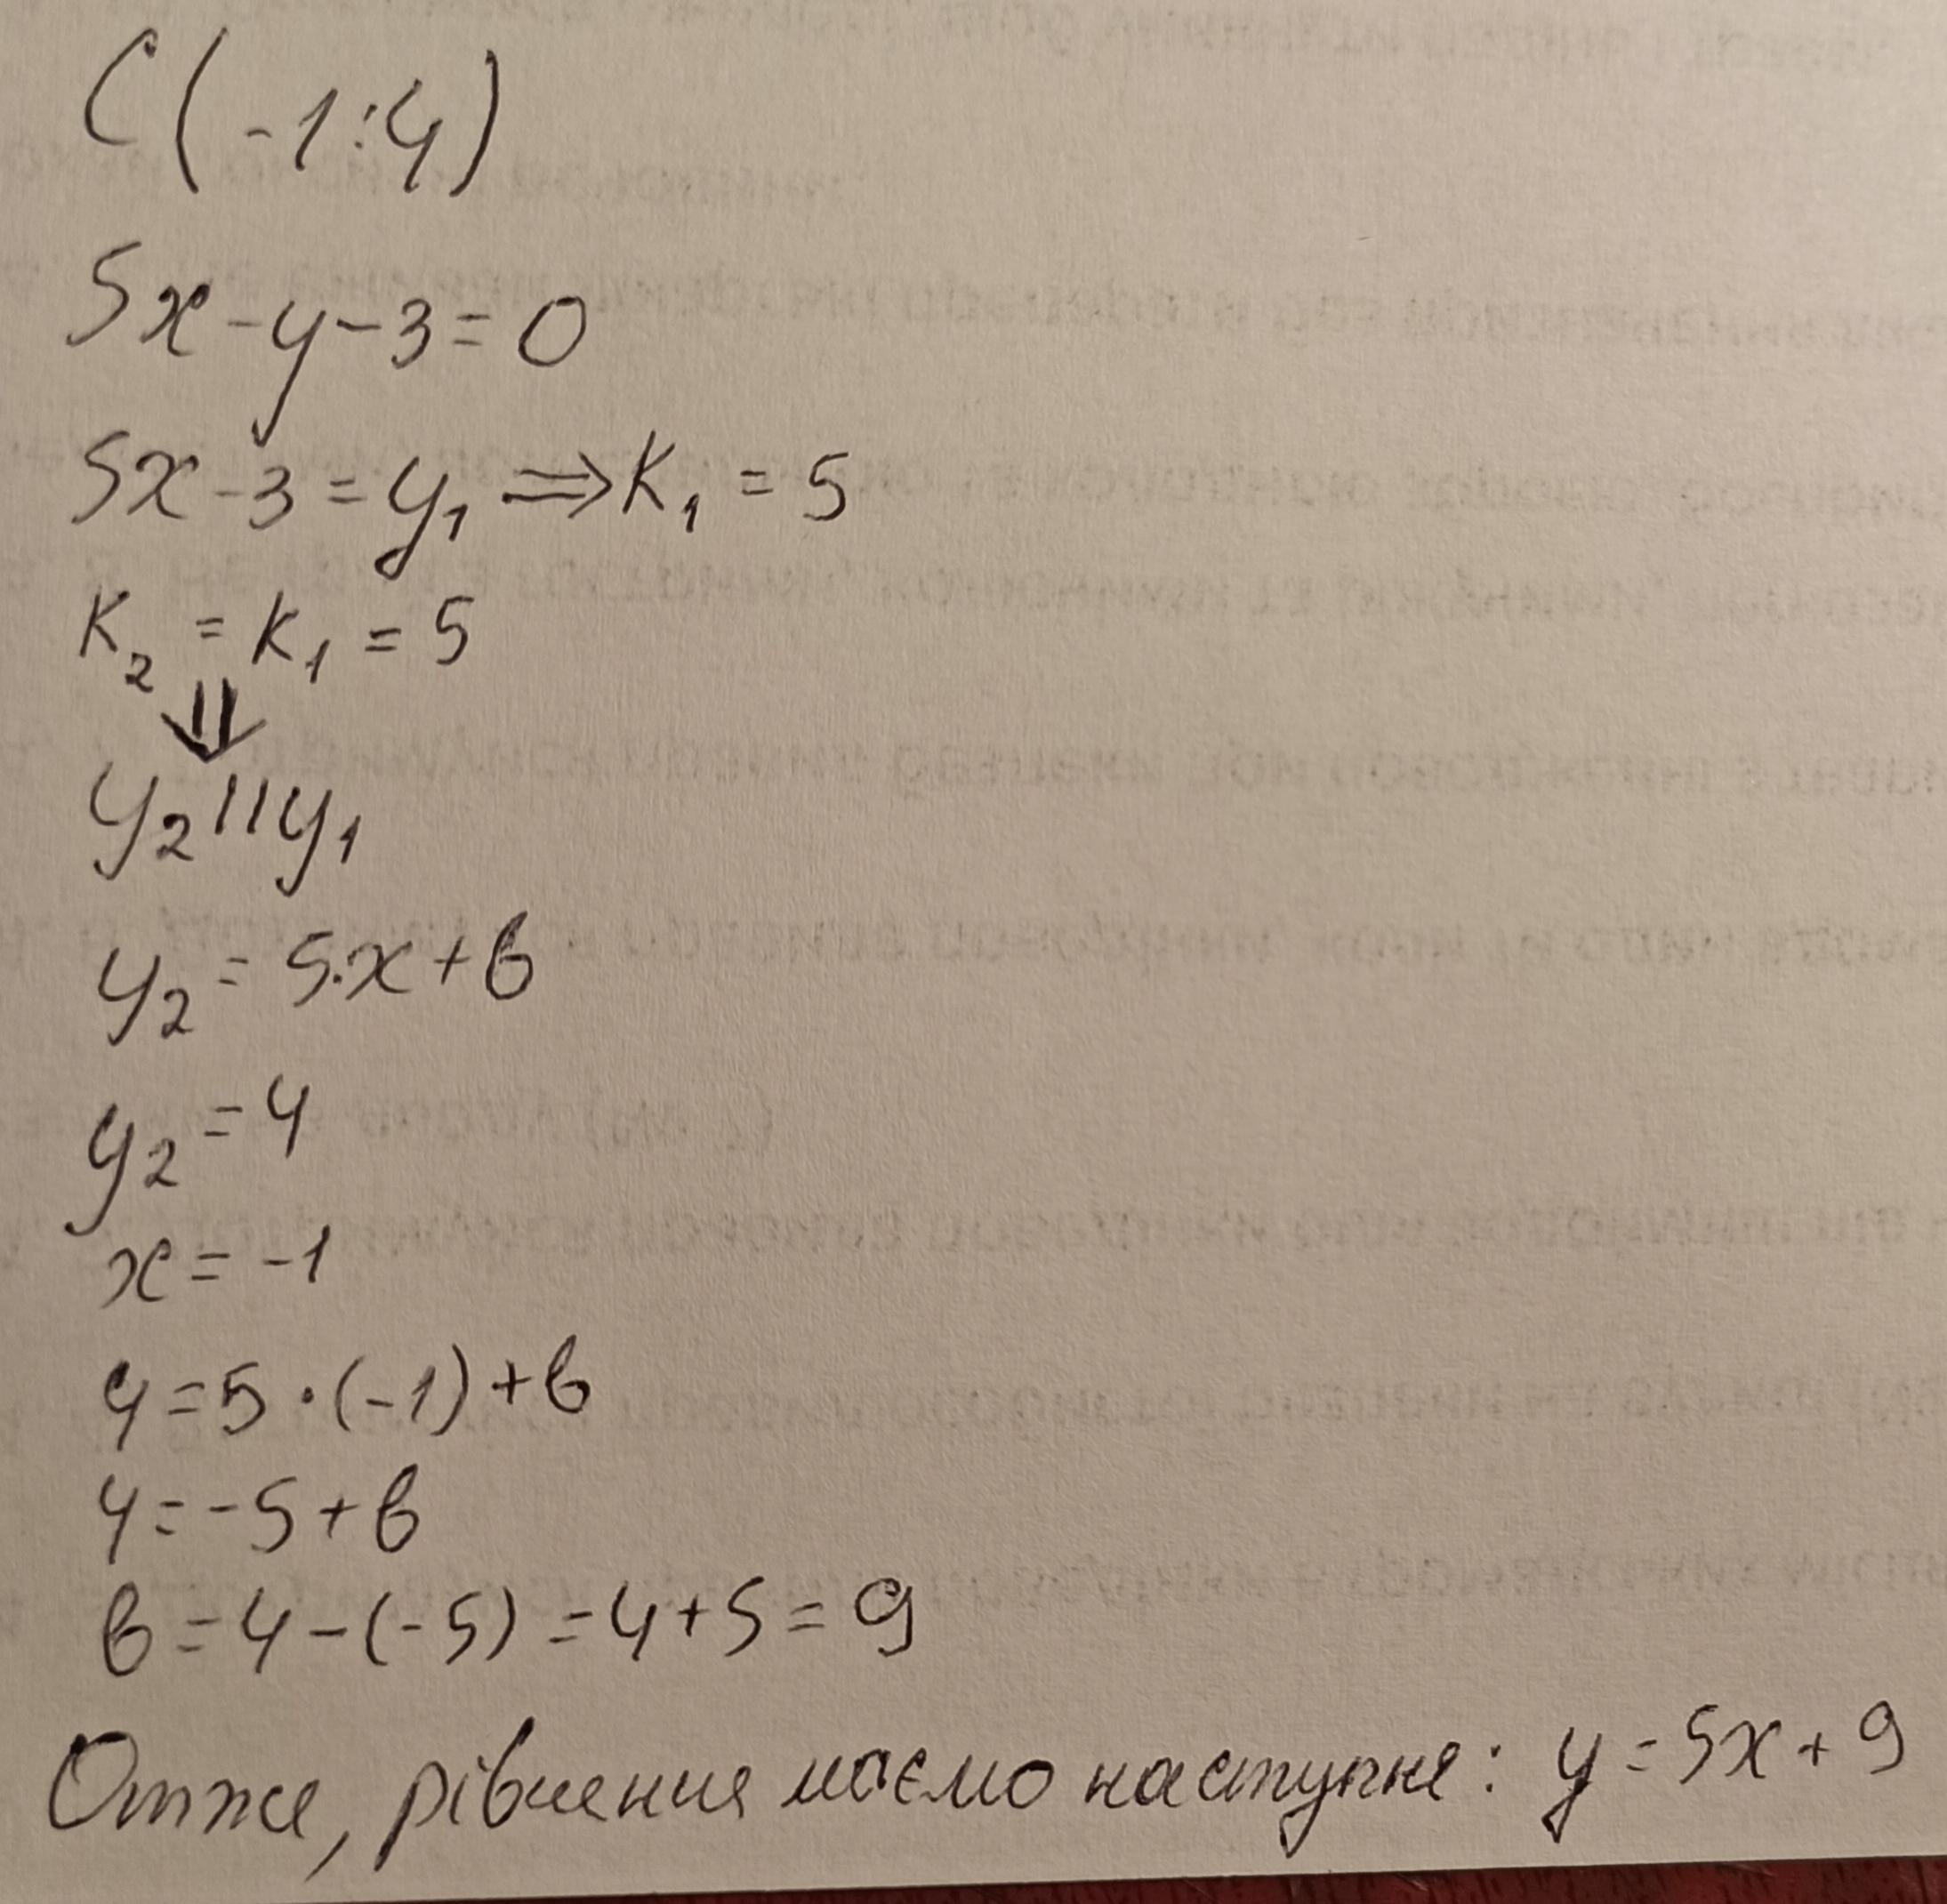 C(-1:4)
5x-y-3=0
5x-3=y₁⇒K₁=5
K₂=K₁=5
⇓
y₂||y₁
y₂=5·x+в
y₂=4
x=-1
4=5·(-1)+в
4=-5+в
в=4-(-5)=4+5=9
Отже, рівняння маємо наступне: y=5x+9